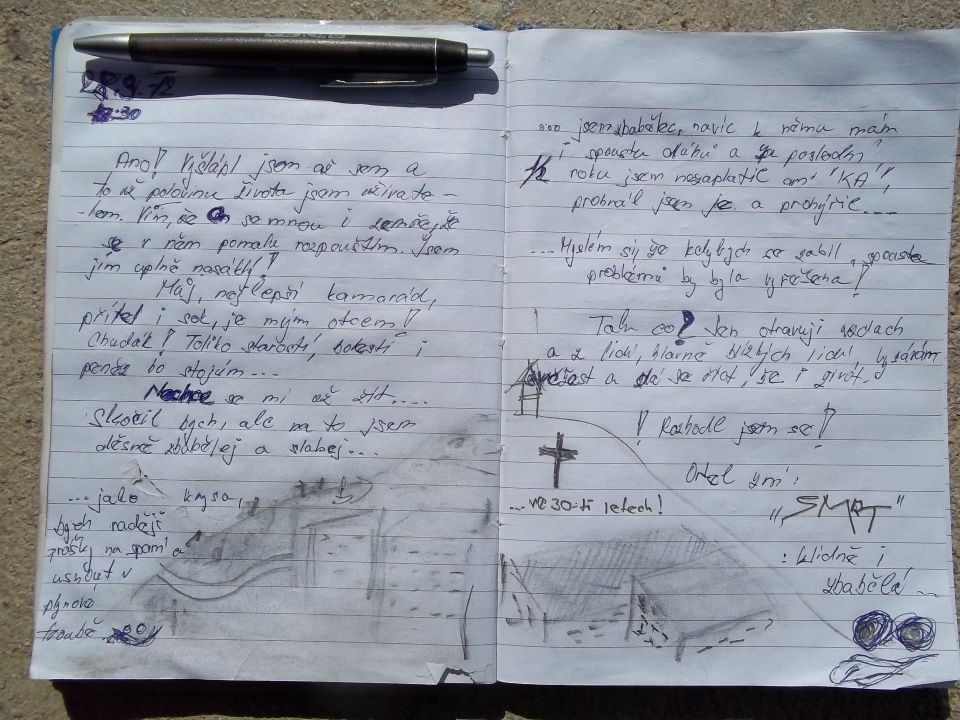 28.9.12
12:30
Ano! Vyšlápl jsem až sem a
to už polovinu života jsem uživate-
-lem. Vím, že on se mnou i zemře, že
se v něm pomalu rozpouštím. Jsem
jím uplně nasáklý!
Můj, nejlepší kamarád,
přítel i sok, je mým otcem!
Chudák! Toliko starostí, bolestí i
peněz ho stojím...
Nechce se mi už žít....
Skočil bych, ale na to jsem
děsně zbabělej a slabej...
...jako krysa,
bych raději
prášky na spaní a
usnout v
plynové
troubě...
... jsem zbabělec, navíc k němu mám
i spoustu dluhů a za poslední
1/2 roku jsem nezaplatil ani "KA",
prohrál jsem je a prohýřil....
...Myslím si, že kdybych se zabil, spousta
problémů by byla vyřešena!
Tak co? Jen otravuji vzduch
a z lidí, hlavně blízkých lidí, vysávám
a dá se říct, že i život.
! Rozhodl jsem se!
Ortel zní:
"SMRT"
...ve 30-ti letech!
: klidně i
zbabělá...